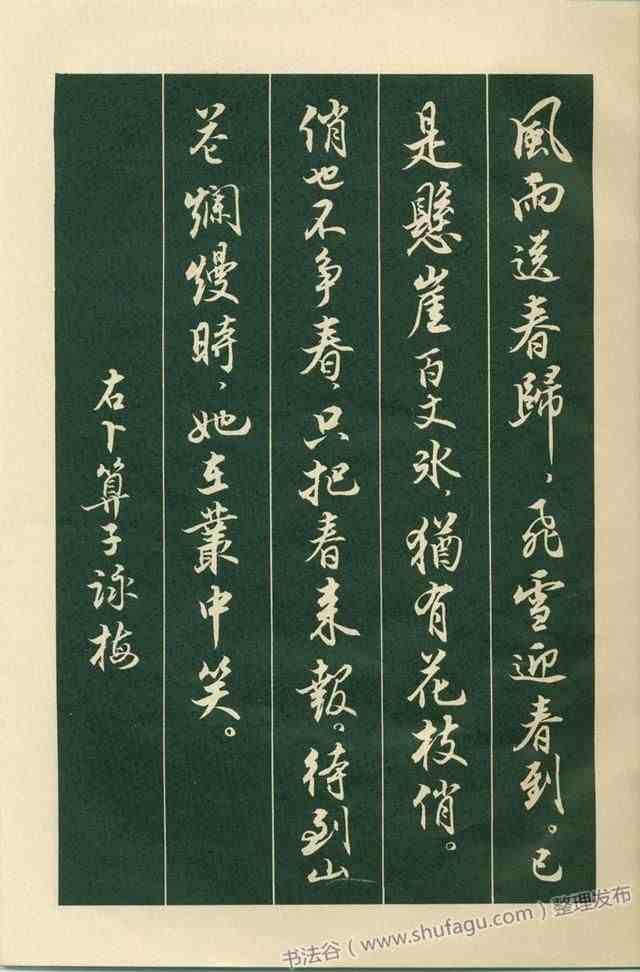 風雨送春歸、飛雪迎春到。已
是懸崖百丈冰、猶有花枝俏。
俏也不争春、只把春来報。待到山
花爛熳時、她在叢中笑。
右卜算子詠梅
书法谷（www.shufagu.com）整理发布